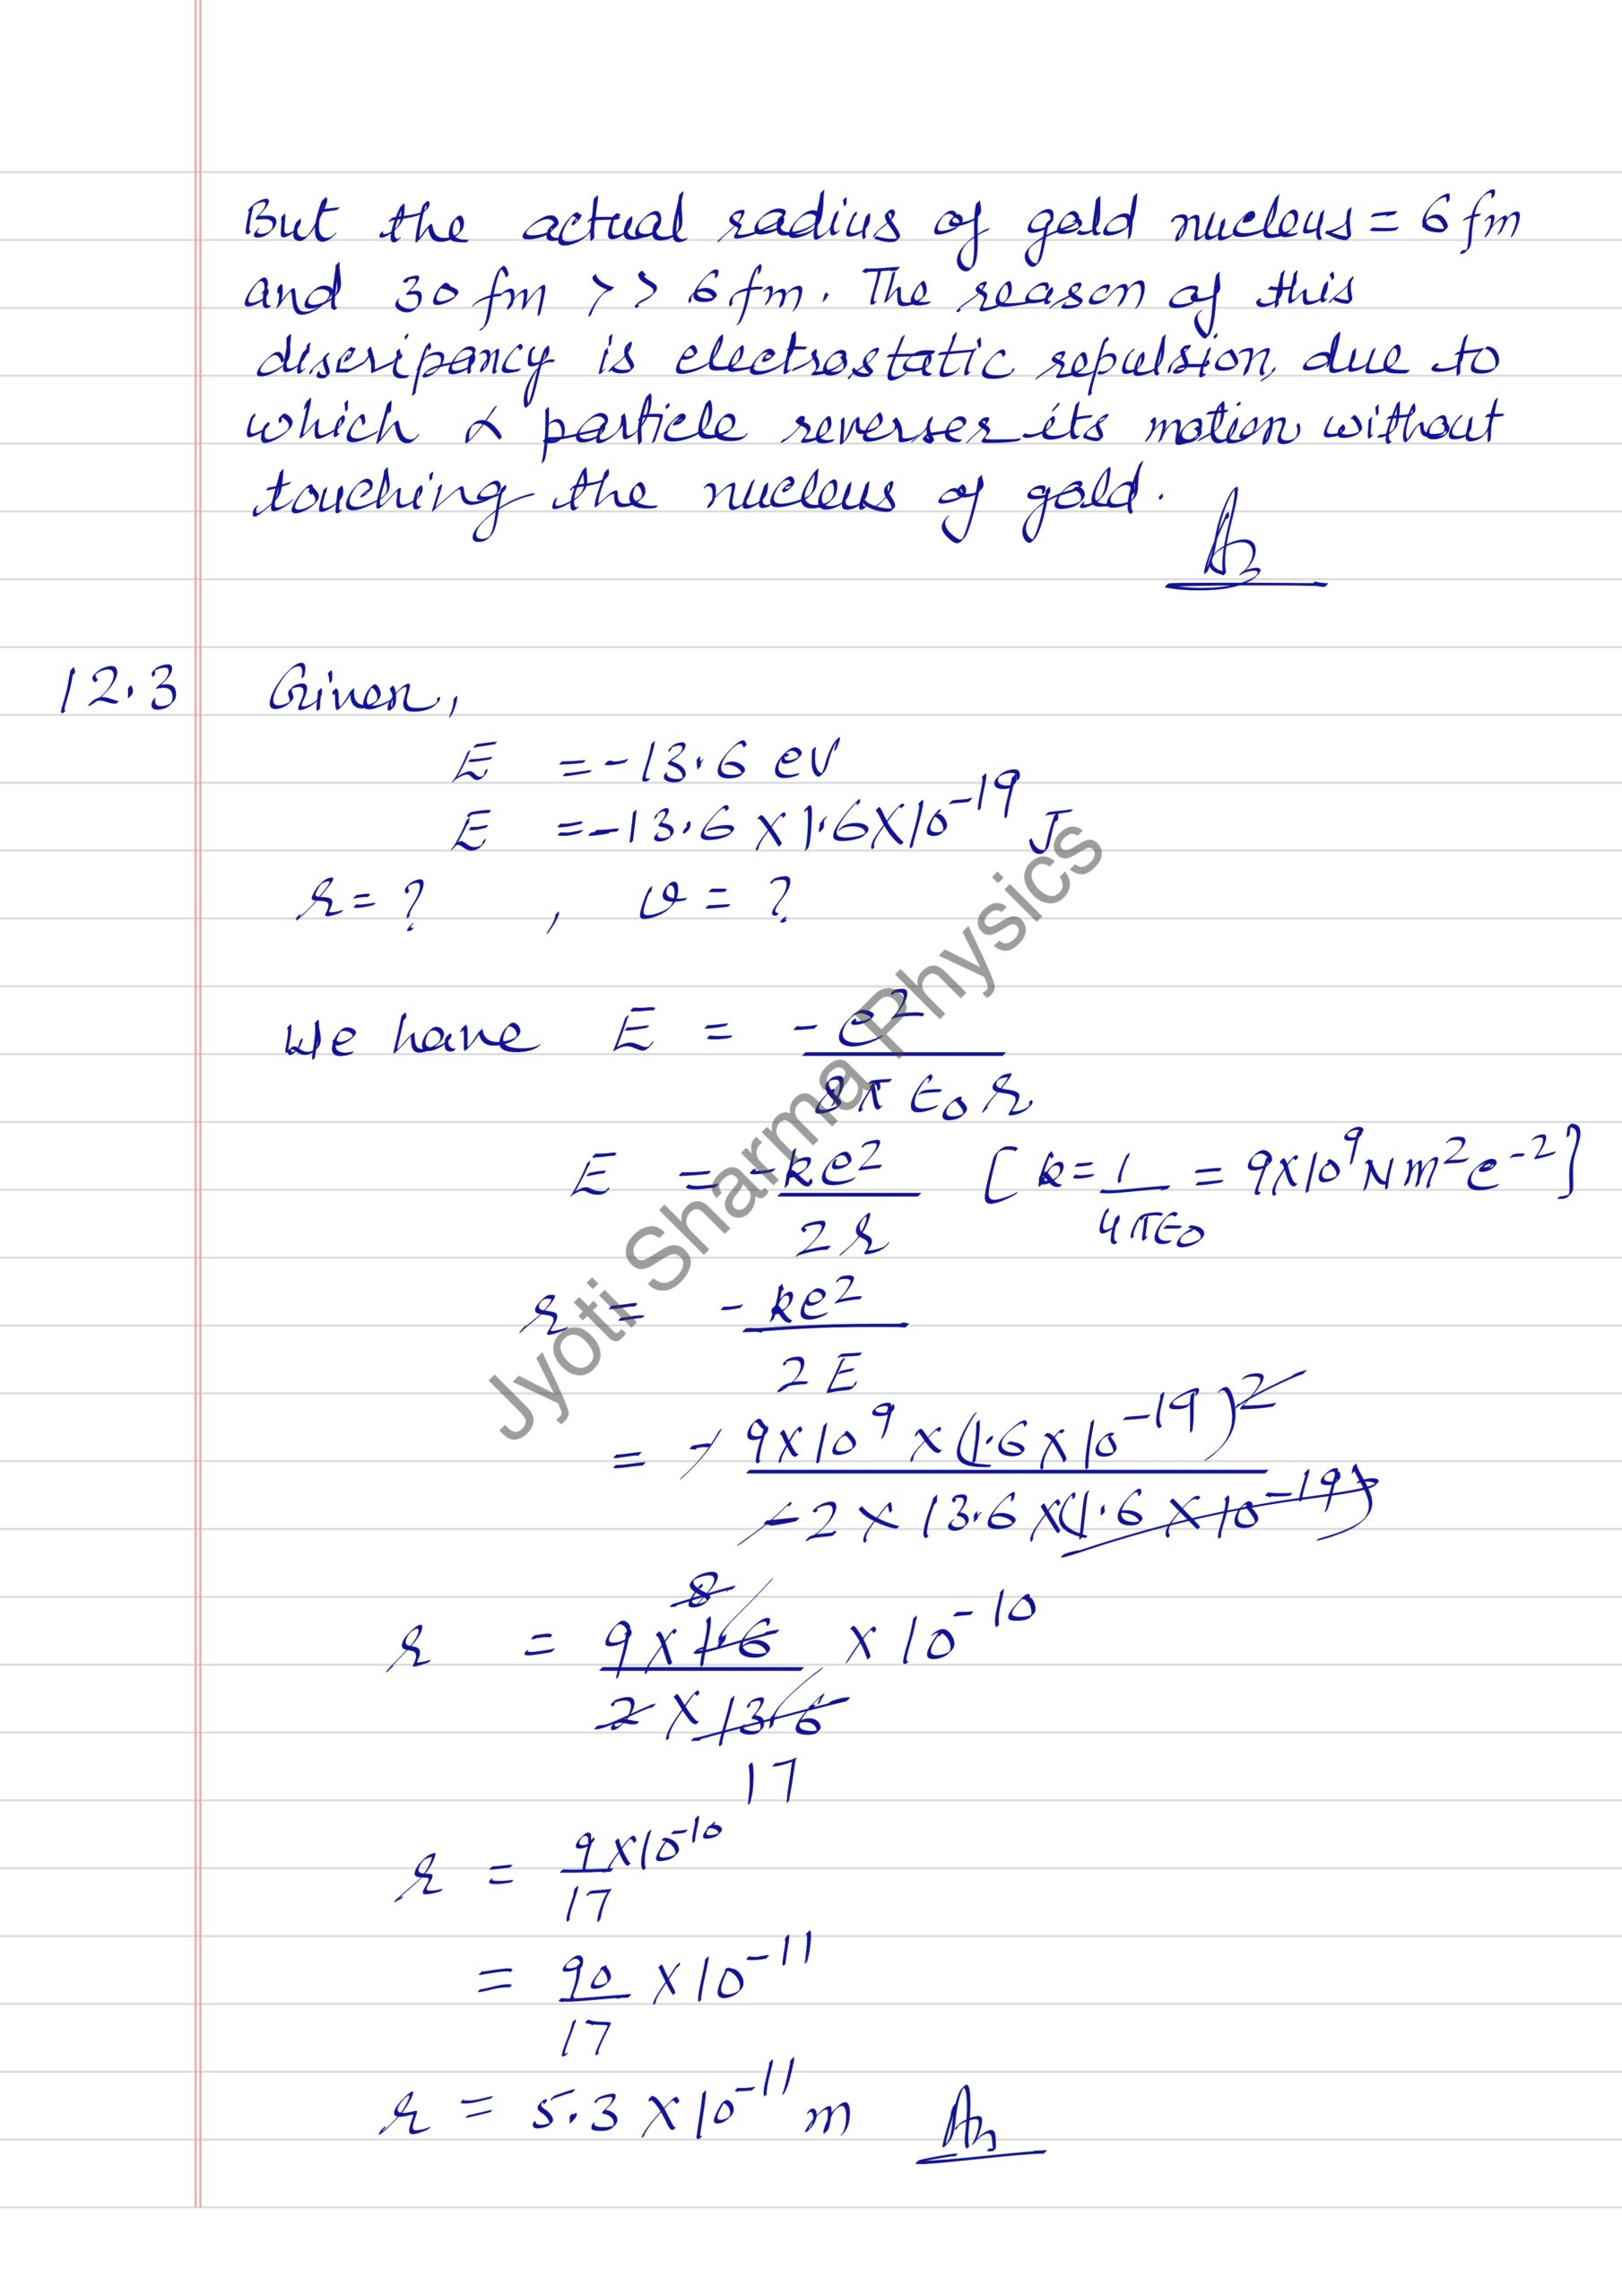 But the actual radius of gold nucleus = 6 fm
and 30 fm >> 6 fm. The reason of this
discripancy is electrostatic repulsion, due to
which α particle reverses its motion without
touching the nucleus of gold.
Ans
12.3 Given,
E = -13.6 eV
E = -13.6 × 1.6 × 10⁻¹⁹ J
r = ? , v = ?
We have E = -e² / 8πε₀r
E = -ke² / 2r [k = 1 / 4πε₀ = 9×10⁹ Nm²e⁻²]
r = -ke² / 2E
= - 9×10⁹ × (1.6×10⁻¹⁹)² / -2 × 13.6 × (1.6 × 10⁻¹⁹)
8
r = 9×1.6 / 2×13.6 × 10⁻¹⁰
17
r = 9×10⁻¹⁰ / 17
= 90 / 17 × 10⁻¹¹
r = 5.3 × 10⁻¹¹ m Ans
Jyoti Sharma Physics